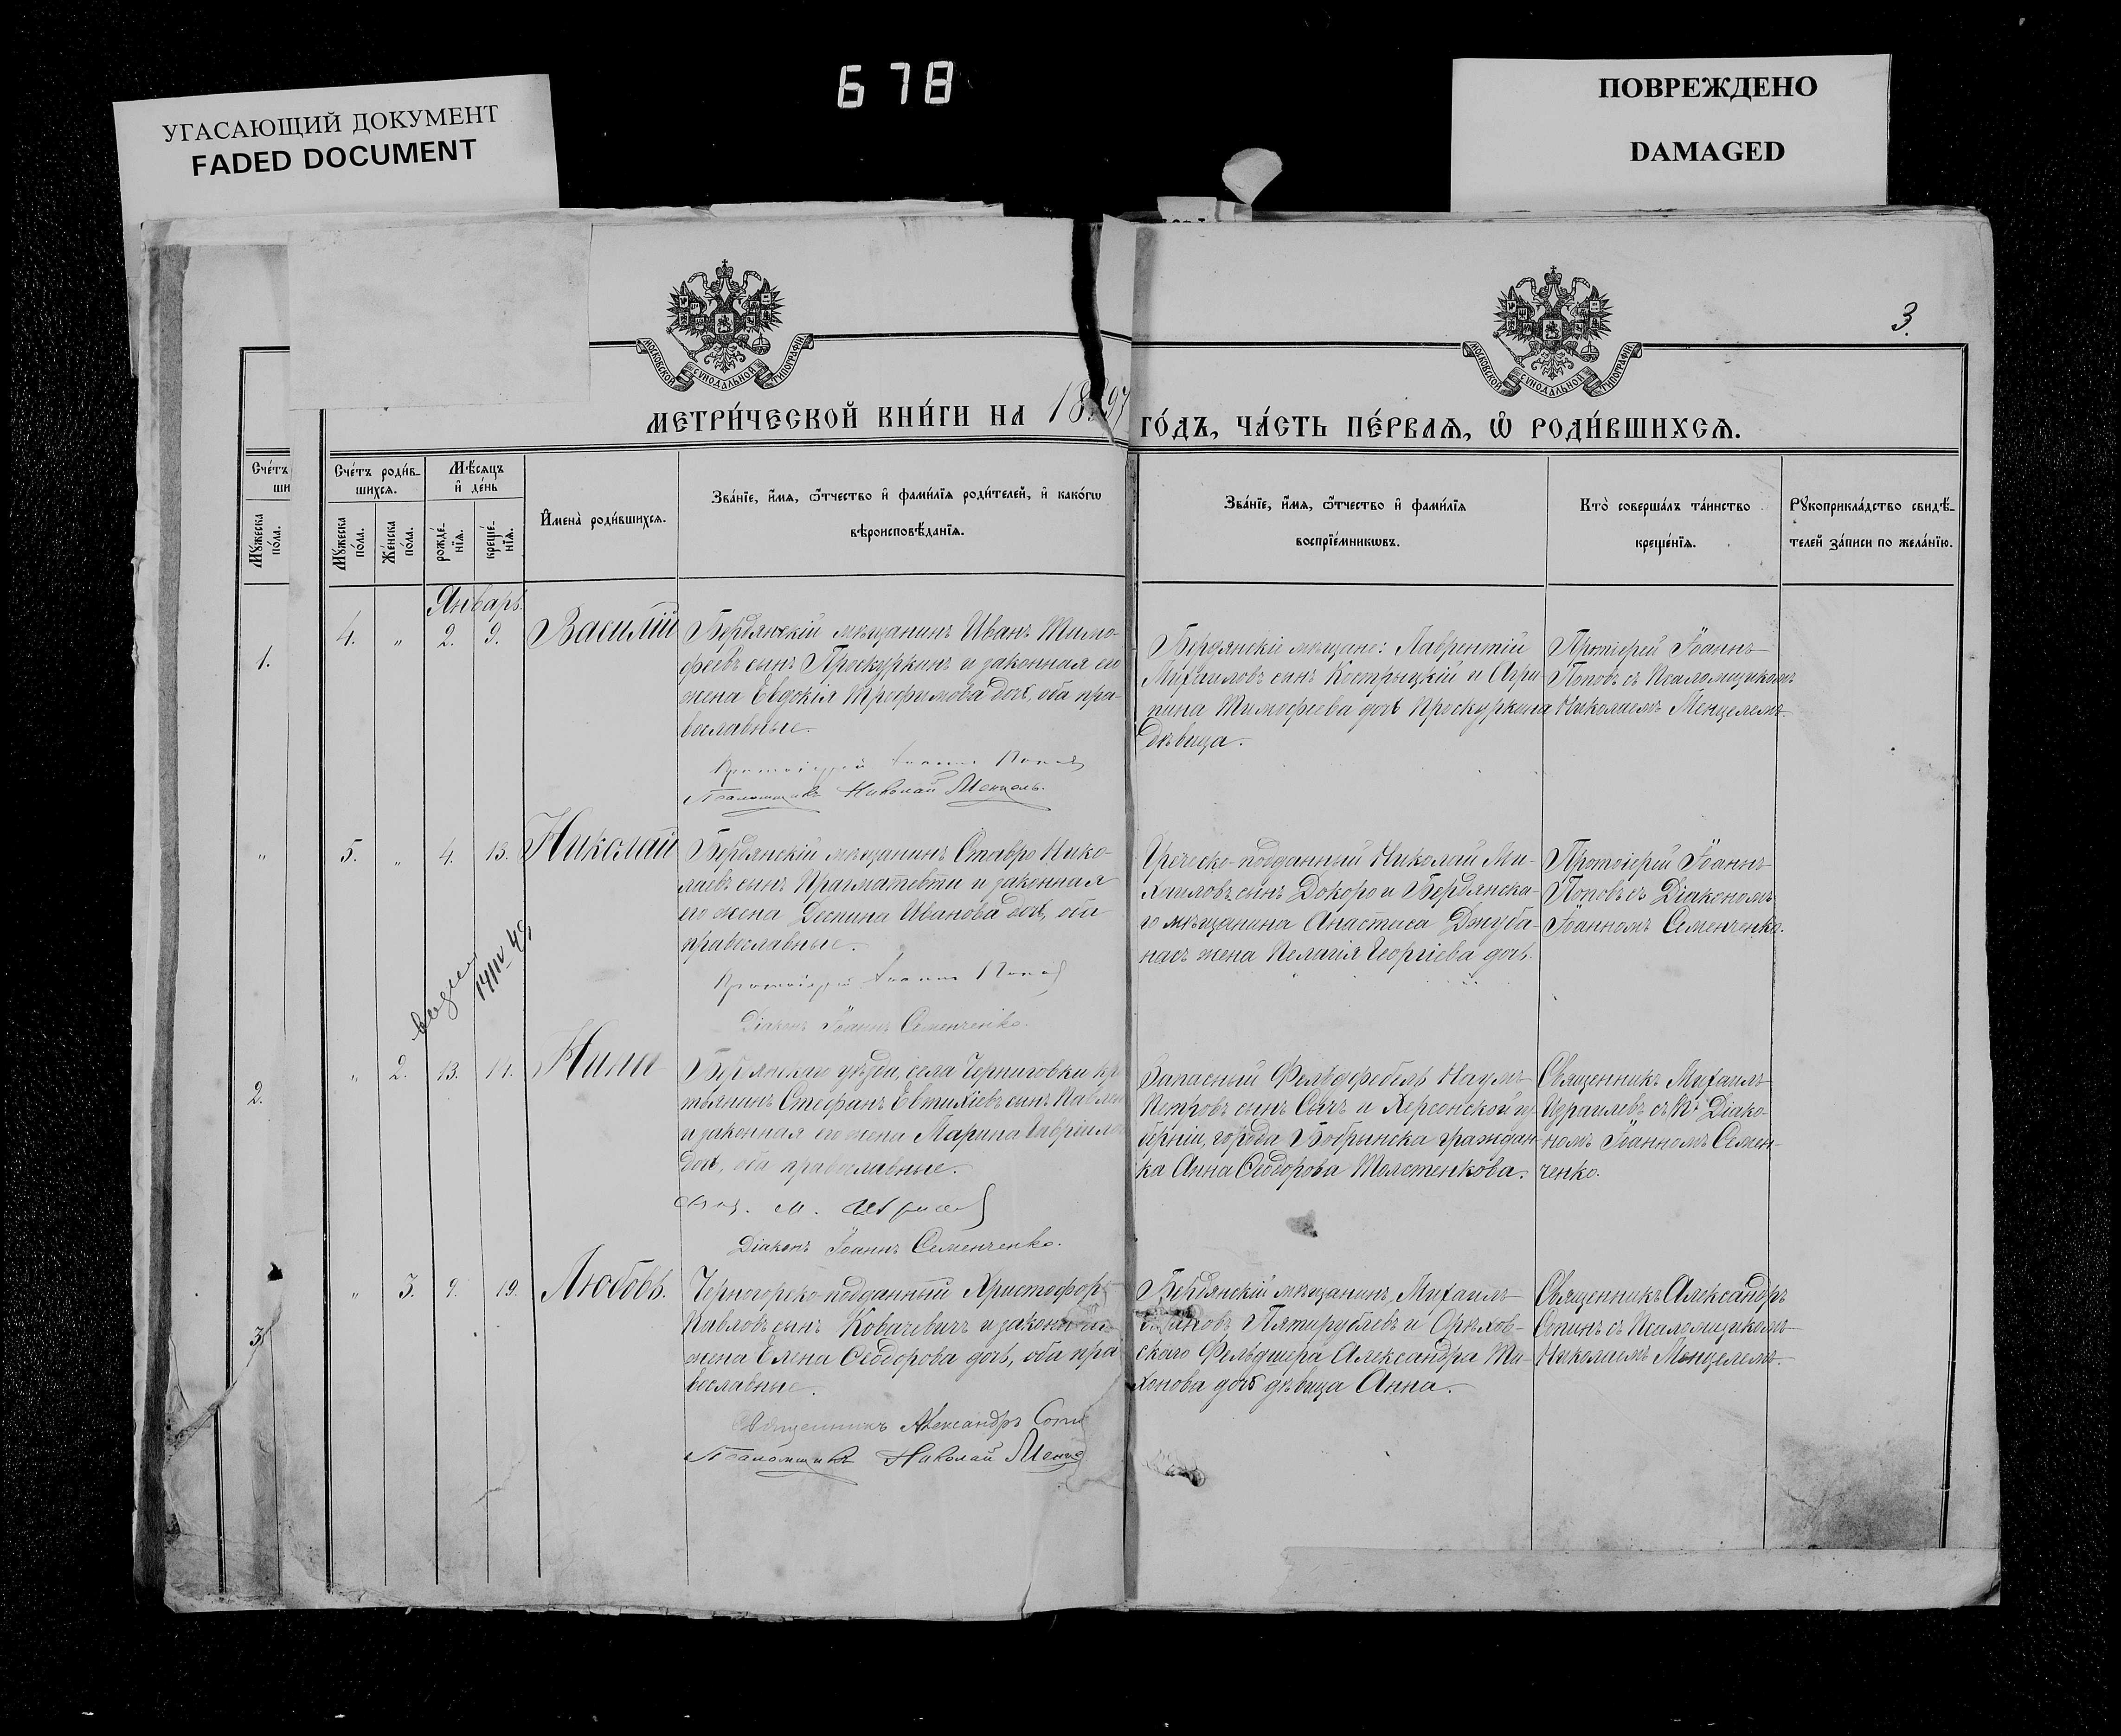 678
УГАСАЮЩИЙ ДОКУМЕНТ
FADED DOCUMENT
ПОВРЕЖДЕНО
DAMAGED
МОСКОВСКОЙ СѴНОДАЛЬНОЙ ТИПОГРАФІИ
МОСКОВСКОЙ СѴНОДАЛЬНОЙ ТИПОГРАФІИ
3.
МЕТРИ́ЧЕСКОЙ КНИ́ГИ НА 1897
ГО́ДЪ, ЧА́СТЬ ПЕ́РВАѦ, Ѽ РОДИ́ВШИХСѦ.
Сче́тъ
ши
Мꙋ́жеска по́ла.
Сче́тъ роди́в-
шихсѧ.
Мꙋ́жеска по́ла.
Же́нска по́ла.
Мѣ́сѧцъ
и҆ де́нь
рожде́-
нїѧ.
креще́-
нїѧ.
И҆мена̀ роди́вшихсѧ.
Зва́нїе, и҆́мѧ, ѻ҆́тчество и҆ фами́лїѧ роди́телей, и҆ како́гѡ
вѣроисповѣ́данїѧ.
Зва́нїе, и҆́мѧ, ѻ҆́тчество и҆ фами́лїѧ
воспрїе́мникѡвъ.
Кто̀ соверша́лъ та́инство
креще́нїѧ.
Рꙋкоприкла́дство свидѣ́-
телей за́писи по жела́нїю.
Январь.
1.
4. " 2. 9. Василій
Бердянскій мѣщанинъ Иванъ Тимо-
феевъ сынъ Проскуркинъ и законная его
жена Евдокія Трофимова дочь, оба пра-
вославные.
Протоіерей Іоаннъ Поповъ
Псаломщикъ Николай Менцель.
Бердянскіе мѣщане: Лаврентій
Михаиловъ сынъ Кострыцкій и Агри-
пина Тимофеева дочь Проскуркина
дѣвица.
Протоіерей Іоаннъ
Поповъ съ Псаломщикомъ
Николаемъ Менцелемъ.
"
5. " 4. 13. Николай
Бердянскій мѣщанинъ Ставро Нико-
лаевъ сынъ Прагматевти и законная
его жена Деспина Иванова дочь, оба
православные.
Протоіерей Іоаннъ Поповъ
Діаконъ Іоаннъ Семенченко.
Греческо-подданный Николай Ми-
хаиловъ сынъ Докоро и Бердянска-
го мѣщанина Анастаса Джуба-
насъ жена Пелагія Георгіева дочь.
Протоіерей Іоаннъ
Поповъ съ Діакономъ
Іоанномъ Семенченко.
2.
" 2. 13. 14. Нина
Бердянскаго уѣзда, села Черниговки кр
тьянинъ Стефанъ Евтихіевъ сынъ
и законная его жена Марина Гавріило
дочь, оба православные.
Свящ. М.
Діаконъ Іоаннъ Семенченко.
Запасный Фельдфебель Наумъ
Петровъ сынъ Сычъ и Херсонской гу-
берніи, города Бобрынска граждан-
ка Анна Ѳеодорова Толстенкова.
Священникъ Михаилъ
Израилевъ съ Діако-
номъ Іоанномъ Семен-
ченко.
3.
" 3. 9. 19. Любовь.
Черногорско-подданный Христофоръ
Павловъ сынъ Ковачевичъ и законная
жена Елена Ѳеодорова дочь, оба пра
вославные.
Священникъ Александръ Сопин
Псаломщикъ Николай Менце
Бердянскій мѣщанинъ Михаилъ
Пятирублевъ и Орѣхов-
скаго Фельдшера Александра Ти-
хонова дочь дѣвица Анна.
Священникъ Александръ
Сопинъ съ Псаломщикомъ
Николаемъ Менцелемъ.